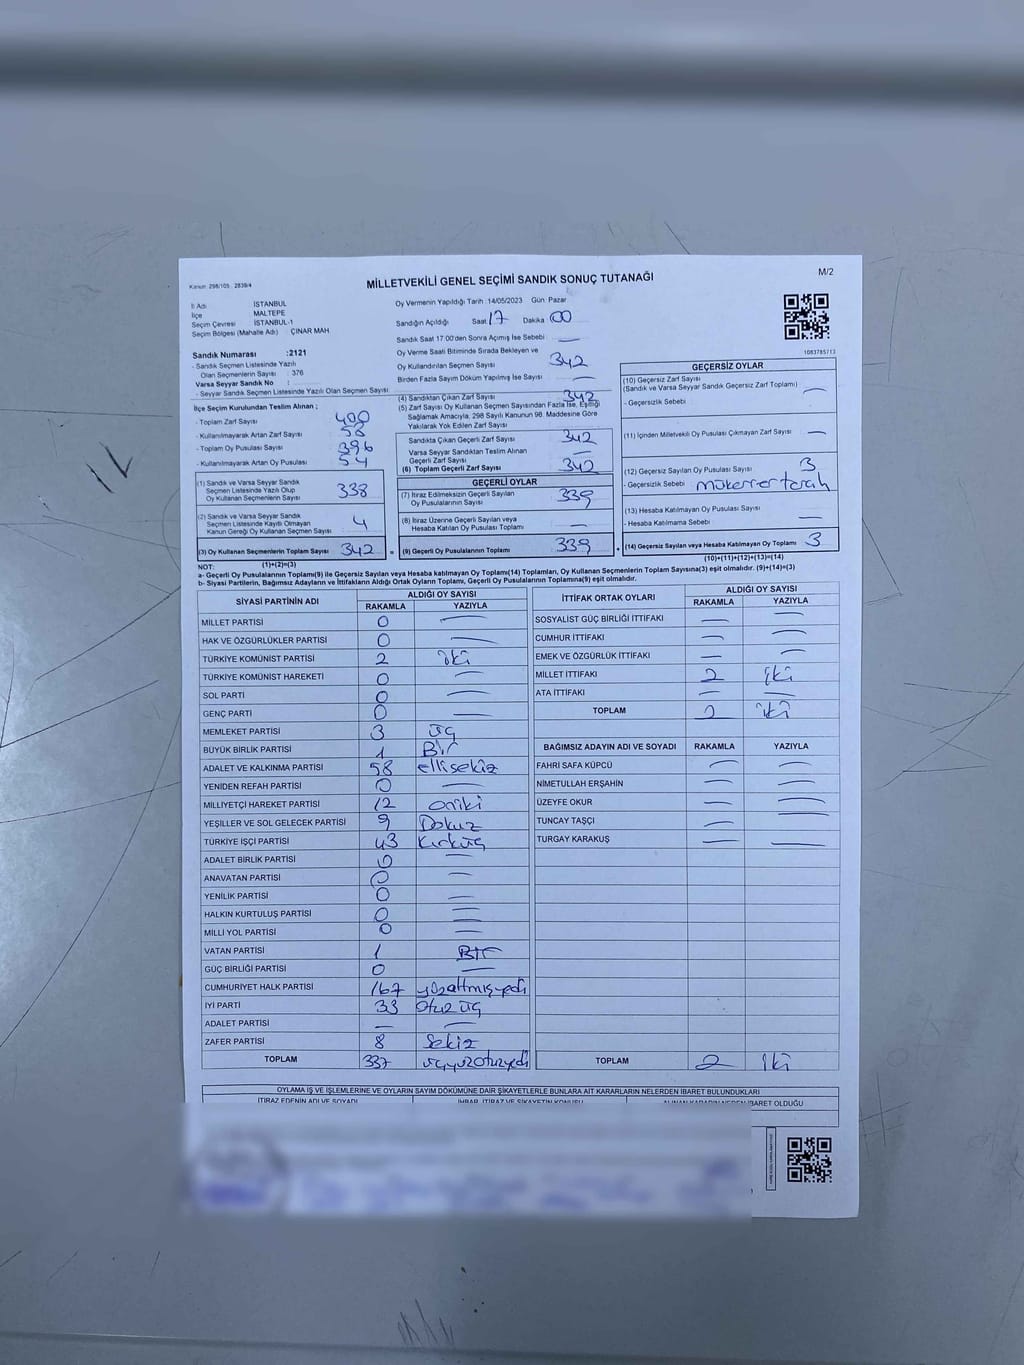 Kanun: 298/105 2839/4
MİLLETVEKİLİ GENEL SEÇİMİ SANDIK SONUÇ TUTANAĞI
M/2
İl Adı İSTANBUL
İlçe MALTEPE
Seçim Çevresi İSTANBUL-1
Seçim Bölgesi (Mahalle Adı) : ÇINAR MAH
Sandık Numarası :2121
- Sandık Seçmen Listesinde Yazılı
Olan Seçmenlerin Sayısı : 376
Varsa Seyyar Sandık No :
- Seyyar Sandık Seçmen Listesinde Yazılı Olan Seçmen Sayısı
Oy Vermenin Yapıldığı Tarih :14/05/2023 Gün Pazar
Sandığın Açıldığı Saat 17 Dakika 00
Sandık Saat 17:00'den Sonra Açımış İse Sebebi : —
Oy Verme Saati Bitiminde Sırada Bekleyen ve
Oy Kullandırılan Seçmen Sayısı 342
Birden Fazla Sayım Döküm Yapılmış İse Sayısı —
1083785713
İlçe Seçim Kurulundan Teslim Alınan ;
- Toplam Zarf Sayısı 400
- Kullanılmayarak Artan Zarf Sayısı 58
- Toplam Oy Pusulası Sayısı 396
- Kullanılmayarak Artan Oy Pusulası 54
(1) Sandık ve Varsa Seyyar Sandık
Seçmen Listesinde Yazılı Olup
Oy Kullanan Seçmenlerin Sayısı 338
(2) Sandık ve Varsa Seyyar Sandık
Seçmen Listesinde Kayıtlı Olmayan
Kanun Gereği Oy Kullanan Seçmen Sayısı 4
(3) Oy Kullanan Seçmenlerin Toplam Sayısı 342
(1)+(2)=(3)
(4) Sandıktan Çıkan Zarf Sayısı 342
(5) Zarf Sayısı Oy Kullanan Seçmen Sayısından Fazla İse, Eşitliği
Sağlamak Amacıyla, 298 Sayılı Kanunun 98. Maddesine Göre
Yakılarak Yok Edilen Zarf Sayısı
Sandıkta Çıkan Geçerli Zarf Sayısı 342
Varsa Seyyar Sandıktan Teslim Alınan
Geçerli Zarf Sayısı —
(6) Toplam Geçerli Zarf Sayısı 342
GEÇERLİ OYLAR
(7) İtiraz Edilmeksizin Geçerli Sayılan
Oy Pusulalarının Sayısı 339
(8) İtiraz Üzerine Geçerli Sayılan veya
Hesaba Katılan Oy Pusulası Toplamı —
= (9) Geçerli Oy Pusulalarının Toplamı 339
GEÇERSİZ OYLAR
(10) Geçersiz Zarf Sayısı
(Sandık ve Varsa Seyyar Sandık Geçersiz Zarf Toplamı) —
- Geçersizlik Sebebi
(11) İçinden Milletvekili Oy Pusulası Çıkmayan Zarf Sayısı —
(12) Geçersiz Sayılan Oy Pusulası Sayısı 3
- Geçersizlik Sebebi mükerrer tercih
(13) Hesaba Katılmayan Oy Pusulası Sayısı —
- Hesaba Katılmama Sebebi
+ (14) Geçersiz Sayılan veya Hesaba Katılmayan Oy Toplamı 3
(10)+(11)+(12)+(13)=(14)
NOT:
a- Geçerli Oy Pusulalarının Toplamı(9) ile Geçersiz Sayılan veya Hesaba katılmayan Oy Toplamı(14) Toplamları, Oy Kullanan Seçmenlerin Toplam Sayısına(3) eşit olmalıdır. (9)+(14)=(3)
b- Siyasi Partilerin, Bağımsız Adayların ve İttifakların Aldığı Ortak Oyların Toplamı, Geçerli Oy Pusulalarının Toplamına(9) eşit olmalıdır.
SİYASİ PARTİNİN ADI ALDIĞI OY SAYISI
RAKAMLA YAZIYLA
MİLLET PARTİSİ 0 —
HAK VE ÖZGÜRLÜKLER PARTİSİ 0 —
TÜRKİYE KOMÜNİST PARTİSİ 2 iki
TÜRKİYE KOMÜNİST HAREKETİ 0 —
SOL PARTİ 0 —
GENÇ PARTİ 0 —
MEMLEKET PARTİSİ 3 üç
BÜYÜK BİRLİK PARTİSİ 1 Bir
ADALET VE KALKINMA PARTİSİ 58 ellisekiz
YENİDEN REFAH PARTİSİ 0 —
MİLLİYETÇİ HAREKET PARTİSİ 12 oniki
YEŞİLLER VE SOL GELECEK PARTİSİ 9 Dokuz
TÜRKİYE İŞÇİ PARTİSİ 43 Kırküç
ADALET BİRLİK PARTİSİ 0 —
ANAVATAN PARTİSİ 0 —
YENİLİK PARTİSİ 0 —
HALKIN KURTULUŞ PARTİSİ 0 —
MİLLİ YOL PARTİSİ 0 —
VATAN PARTİSİ 1 Bir
GÜÇ BİRLİĞİ PARTİSİ 0 —
CUMHURİYET HALK PARTİSİ 167 yüzaltmışyedi
İYİ PARTİ 33 otuz üç
ADALET PARTİSİ — —
ZAFER PARTİSİ 8 Sekiz
TOPLAM 337 üçyüzotuzyedi
İTTİFAK ORTAK OYLARI ALDIĞI OY SAYISI
RAKAMLA YAZIYLA
SOSYALİST GÜÇ BİRLİĞİ İTTİFAKI — —
CUMHUR İTTİFAKI — —
EMEK VE ÖZGÜRLÜK İTTİFAKI — —
MİLLET İTTİFAKI 2 iki
ATA İTTİFAKI — —
TOPLAM 2 iki
BAĞIMSIZ ADAYIN ADI VE SOYADI RAKAMLA YAZIYLA
FAHRİ SAFA KÜPCÜ — —
NİMETULLAH ERŞAHİN — —
ÜZEYFE OKUR — —
TUNCAY TAŞÇI — —
TURGAY KARAKUŞ — —
TOPLAM 2 iki
OYLAMA İŞ VE İŞLEMLERİNE VE OYLARIN SAYIM DÖKÜMÜNE DAİR ŞİKAYETLERLE BUNLARA AİT KARARLARIN NELERDEN İBARET BULUNDUKLARI
İTİRAZ EDENİN ADI VE SOYADI İHBAR, İTİRAZ VE ŞİKAYETİN KONUSU ALINAN KARARIN NEDEN İBARET OLDUĞU